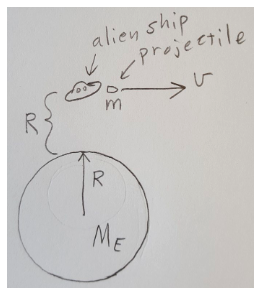 alien ship
projectile
m
v
R
R
M_E